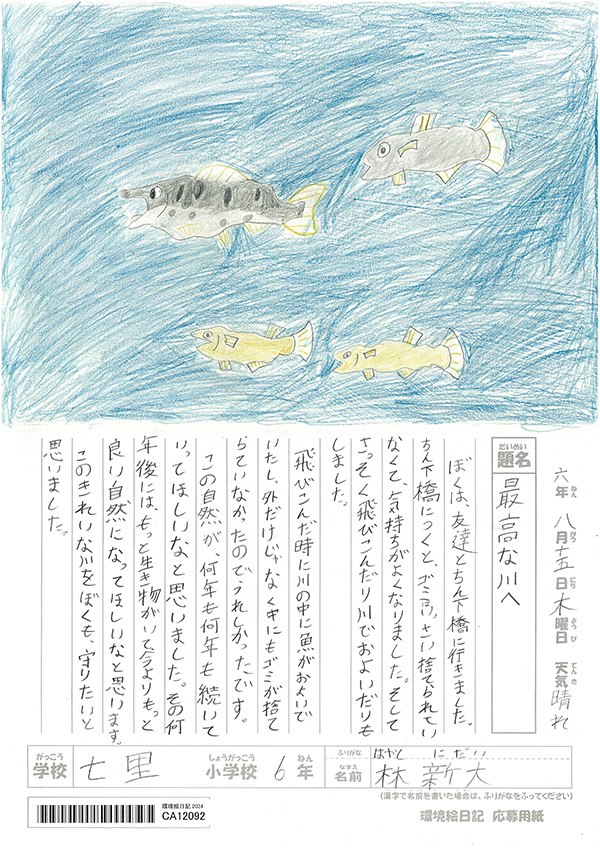 六年 八月十五日 木曜日 天気 晴れ
ねん がつ にち ようび てんき
だいめい
題名 最高な川へ
ぼくは、友達とちん下橋に行きました。
ちん下橋につくと、ゴミ 捨てられてい
なくて、気持ちがよくなりました。そして
さっそく飛びこんだり川でおよいだりも
しました。
飛びこんだ時に川の中に魚がおよいで
いたし、外だけじゃなく中にもゴミが捨て
らていなかったのでうれしかったです。
この自然が、何年も何年も続いて
いってほしいなと思いました。その何
年後にはもっと生き物がいて今よりもっと
良い自然になってほしいなと思います。
このきれいな川をぼくも、守りたいと
思いました。
がっこう しょうがっこう ねん ふりがな はやし にだい
学校 七里 小学校 6年 なまえ 名前 林 新大
(漢字で名前を書いた場合は、ふりがなをふってください)
環境絵日記 2024
CA12092
環境絵日記 応募用紙